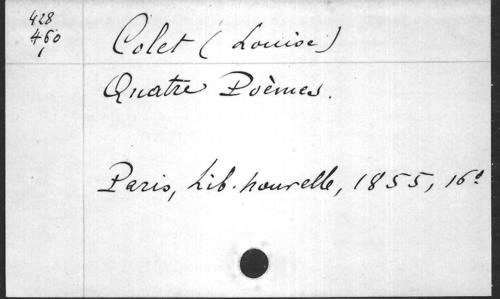 428
460
1
Colet (Louise)
Quatre Poèmes.
Paris, Lib. nouvelle, 1855, 16º